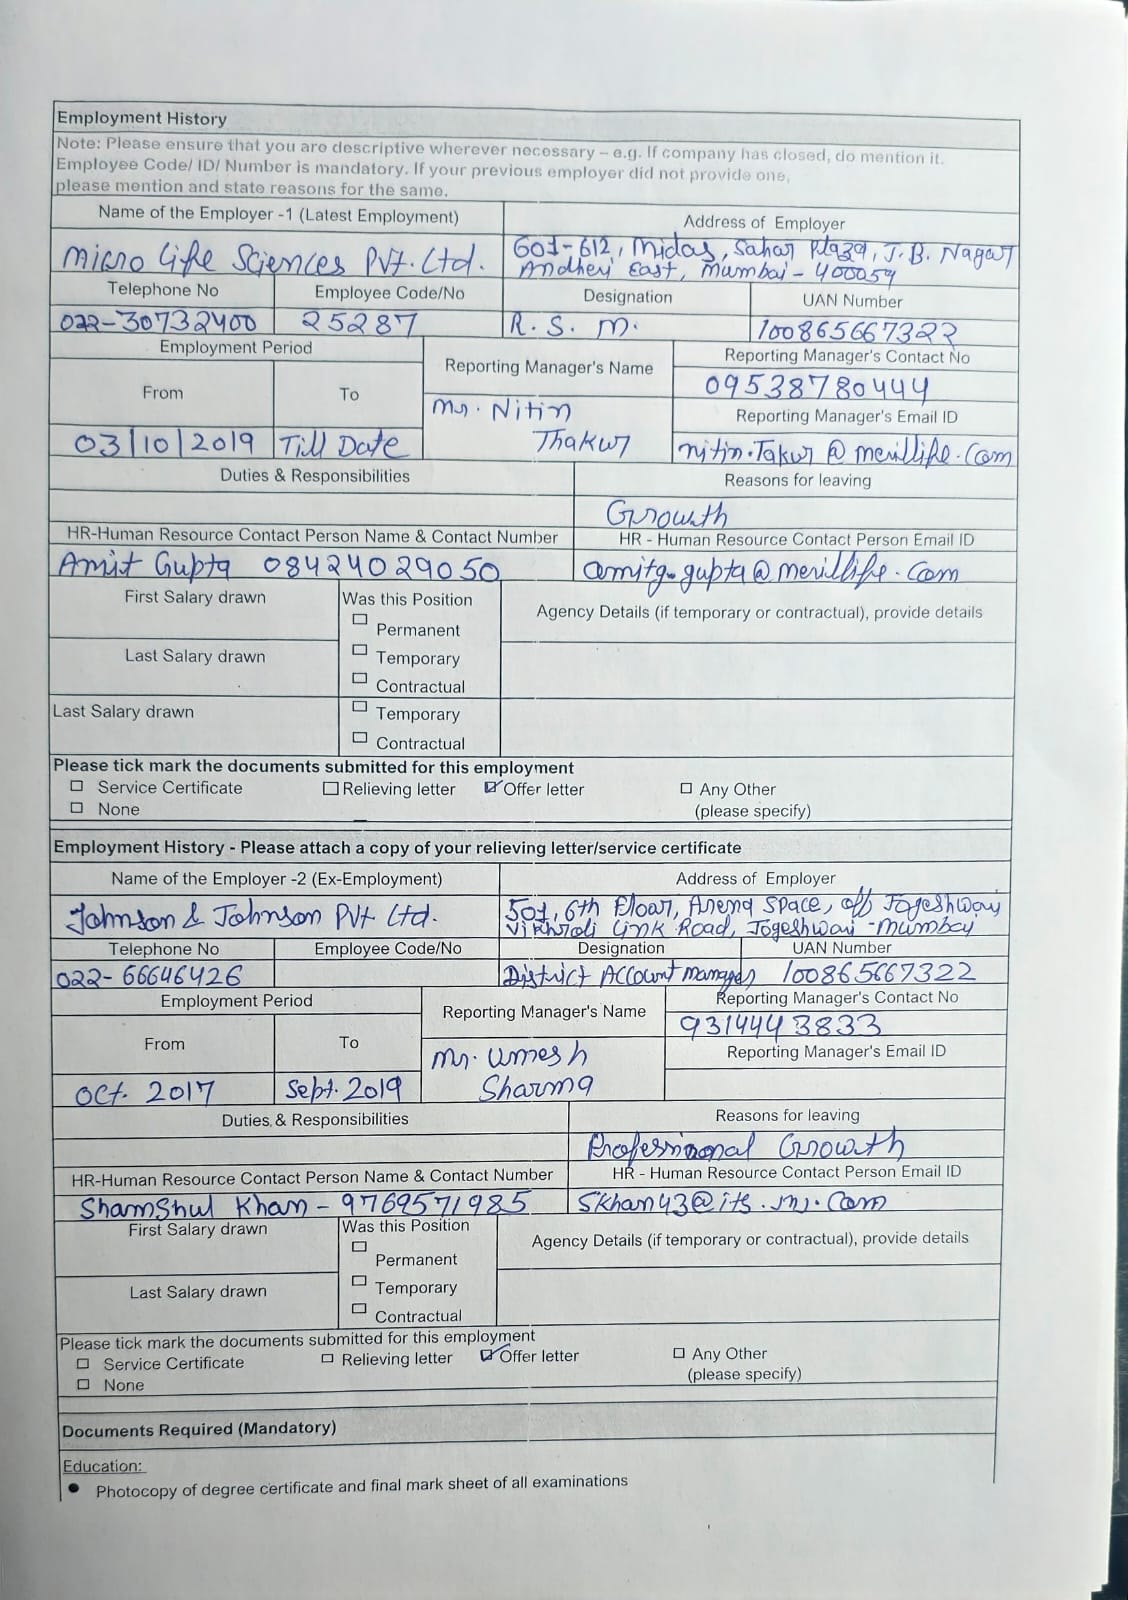 Employment History
Note: Please ensure that you are descriptive wherever necessary – e.g. If company has closed, do mention it.
Employee Code/ ID/ Number is mandatory. If your previous employer did not provide one,
please mention and state reasons for the same.
Name of the Employer -1 (Latest Employment)
Address of Employer
Micro Life Sciences Pvt. Ltd.
601-612, Midas, Sahar Plaza, J.B. Nagar
Andheri East, Mumbai - 400059
Telephone No
Employee Code/No
Designation
UAN Number
022-30732400
25287
R. S. M.
100865667322
Employment Period
Reporting Manager's Name
Reporting Manager's Contact No
From
To
09538780444
Mr. Nitin
Thakur
Reporting Manager's Email ID
03/10/2019
Till Date
nitin.Takur@merillife.com
Duties & Responsibilities
Reasons for leaving
Growth
HR-Human Resource Contact Person Name & Contact Number
HR - Human Resource Contact Person Email ID
Amit Gupta 08424029050
amitg.gupta@merillife.com
First Salary drawn
Was this Position
Agency Details (if temporary or contractual), provide details
Permanent
Last Salary drawn
Temporary
Contractual
Last Salary drawn
Temporary
Contractual
Please tick mark the documents submitted for this employment
Service Certificate
Relieving letter
Offer letter
Any Other
None
(please specify)
Employment History - Please attach a copy of your relieving letter/service certificate
Name of the Employer -2 (Ex-Employment)
Address of Employer
Johnson & Johnson Pvt Ltd.
501, 6th Floor, Arena Space, off Jogeshwari
Vikhroli Link Road, Jogeshwari - Mumbay
Telephone No
Employee Code/No
Designation
UAN Number
022-66646426
District Account manager
100865667322
Employment Period
Reporting Manager's Name
Reporting Manager's Contact No
9314443833
From
To
Mr. Umesh
Sharma
Reporting Manager's Email ID
Oct. 2017
Sept. 2019
Duties & Responsibilities
Reasons for leaving
Professional Growth
HR-Human Resource Contact Person Name & Contact Number
HR - Human Resource Contact Person Email ID
Shamshul Khan - 9769571985
Skhan43@its.jnj.com
First Salary drawn
Was this Position
Agency Details (if temporary or contractual), provide details
Permanent
Last Salary drawn
Temporary
Contractual
Please tick mark the documents submitted for this employment
Service Certificate
Relieving letter
Offer letter
Any Other
None
(please specify)
Documents Required (Mandatory)
Education:
● Photocopy of degree certificate and final mark sheet of all examinations